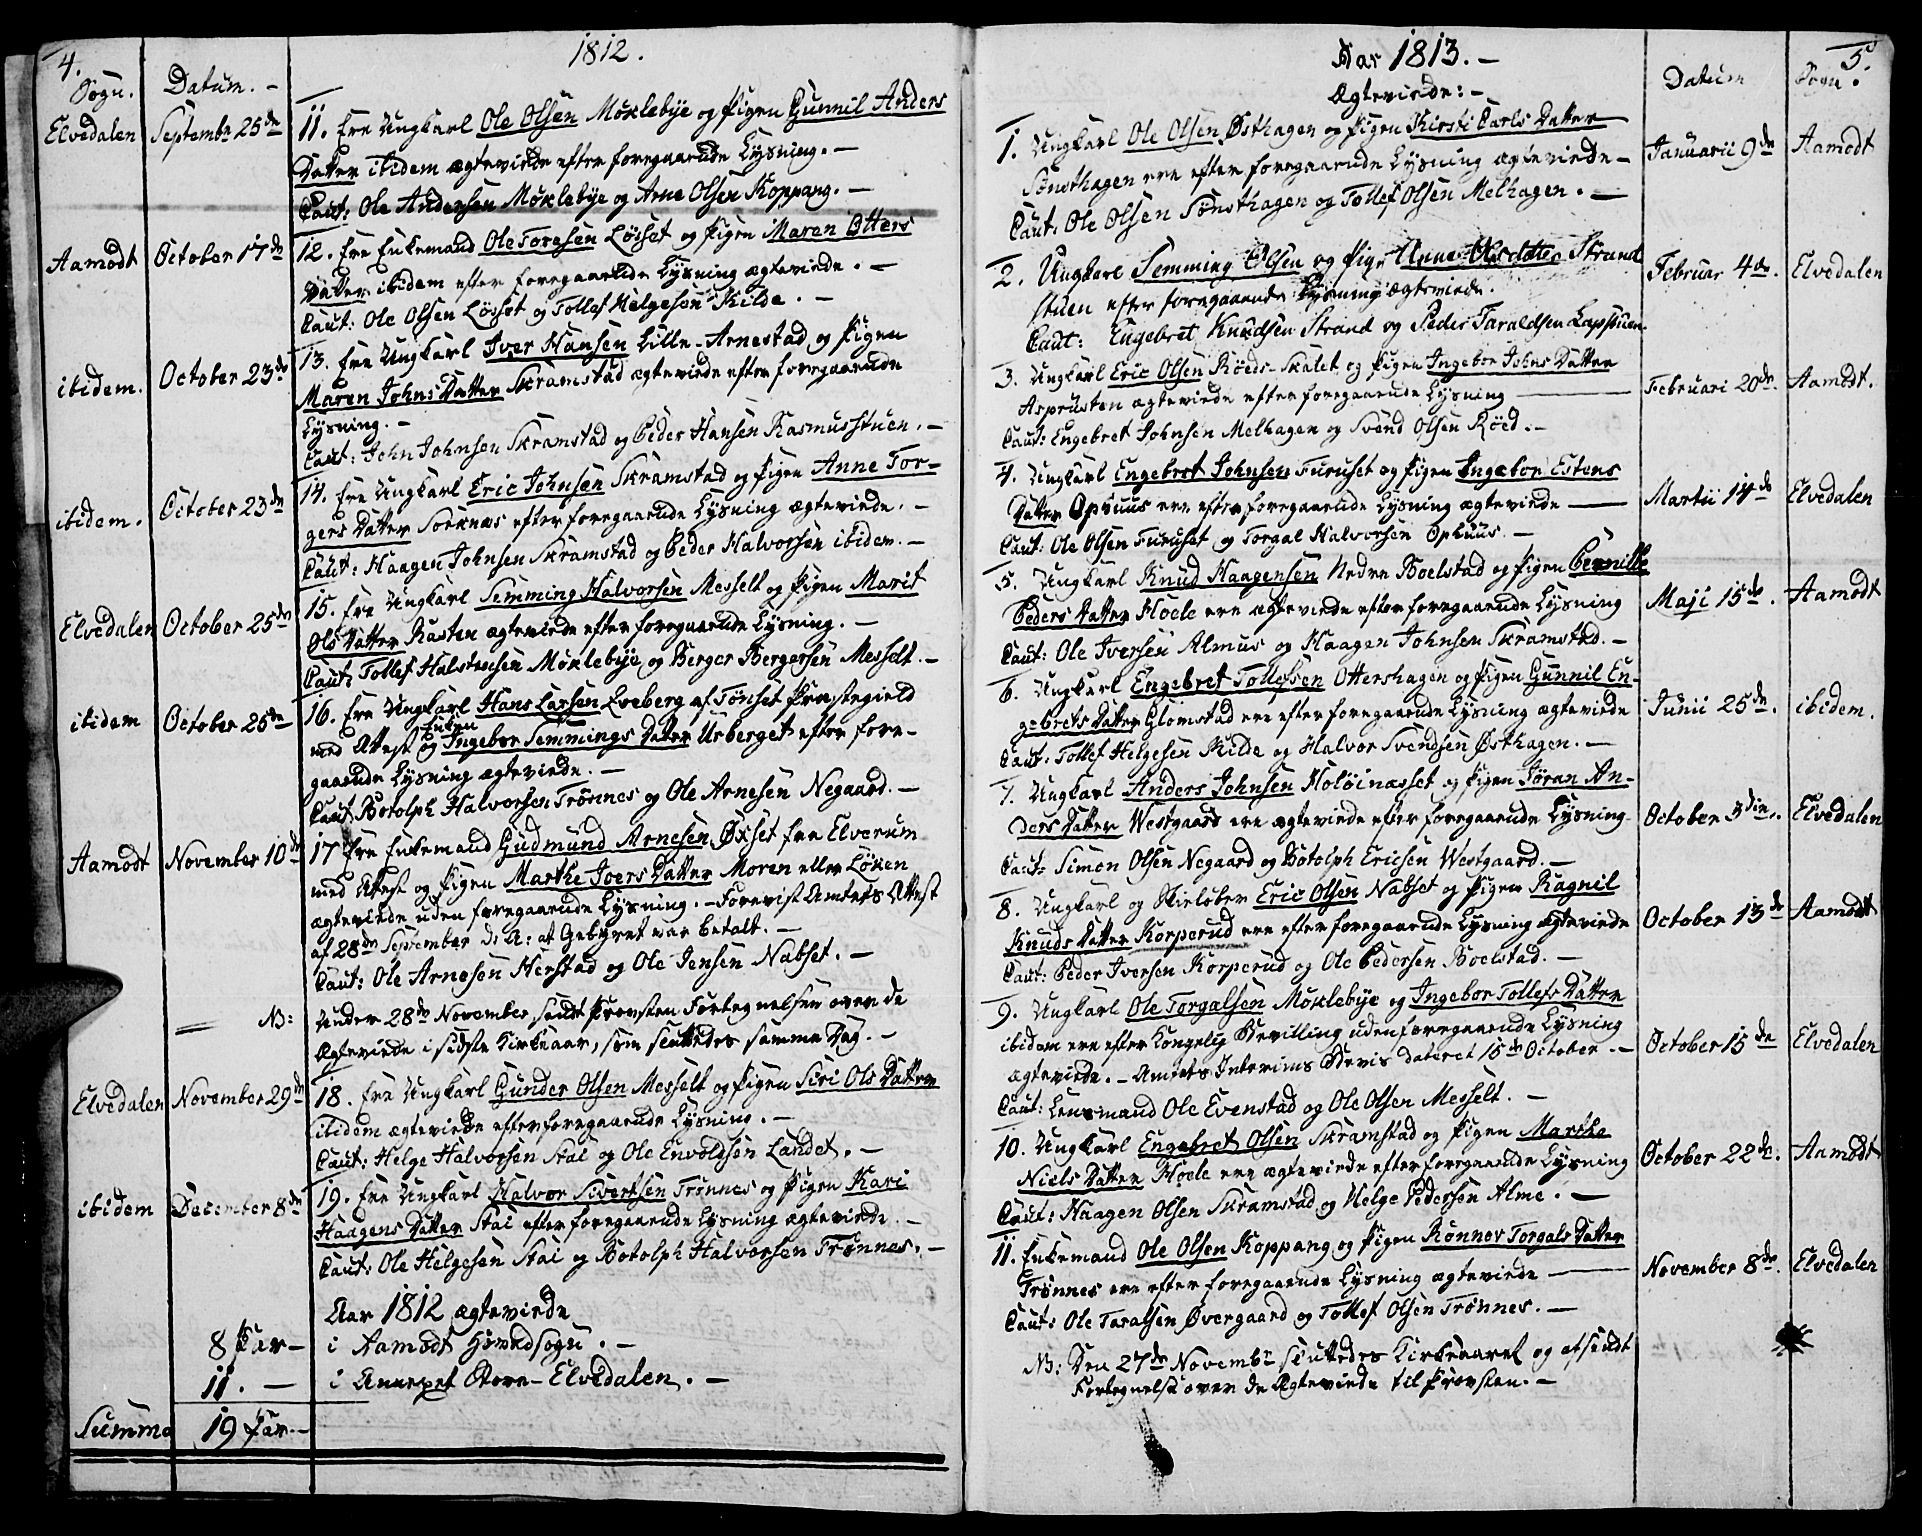 4.
1812.
Sogn. Datum. -
Elvedalen Septembr 25de 11. Ere Ungkarl Ole Olsen Møklebye og Pigen Gunnil Anders
Datter ibidem ægteviede efter foregaaende Lysning. -
Caut: Ole Andersen Møklebye og Arne Olsen Koppang. -
Aamodt October 17de 12. Ere Enkemand Ole Toresen Løsset og Pigen Maren Otters
Datter ibidem efter foregaaende Lysning ægteviede. -
Caut: Ole Olsen Løsset og Tollef Helgesen Kilde. -
ibidem. October 23de 13. Ere Ungkarl Iver Hansen Lille-Arnestad og Pigen
Maren Johns Datter Skramstad ægteviede efter foregaaende
Lysning. -
Caut: John Johnsen Skramstad og Peder Hansen Rasmusstuen. -
ibidem. October 23de 14. Ere Ungkarl Eric Johnsen Skramstad og Pigen Anne Tor-
gers Datter Sorknæs efter foregaaende Lysning ægteviede. -
Caut: Haagen Johnsen Skramstad og Peder Halvorsen ibidem. -
Elvedalen October 25de 15. Ere Ungkarl Semming Halvorsen Messelt og Pigen Marit
Ols Datter Rasten ægteviede efter foregaaende Lysning. -
Caut: Tollef Halstensen Møklebye og Berger Bergersen Messelt. -
ibidem October 25de 16. Ere Ungkarl Hans Larsen Eveberg af Tønset Præstegield
med Attest og Enken Ingebor Semmings Datter Urberget efter fore-
gaaende Lysning ægteviede. -
Caut Botolph Halvorsen Trønnes og Ole Arnesen Negaard. -
Aamodt November 10de 17 Ere Enkemand Gudmund Arnesen Øxset fra Elverum
med Attest og Pigen Marthe Joers Datter Moren eller Løken
ægteviede uden foregaaende Lysning. - Forevist Amtets Attest
af 28de September d: A: at Gebyret var betalt. -
Caut: Ole Arnesen Herstad og Ole Jensen Nabset. -
NB: Under 28de November sendt Provsten Fortegnelsen over de
Ægteviede i sidste Kirkeaar, som sluttedes samme Dag. -
Elvedalen November 29de 18. Ere Ungkarl Gunder Olsen Messelt og Pigen Siri Ols Datter
ibidem ægteviede efter foregaaende Lysning. -
Caut: Helge Halvorsen Stai og Ole Envoldsen Landet. -
ibidem December 8de 19. Ere Ungkarl Halvor Sivertsen Trønnes og Pigen Kari
Haagens Datter Stai efter foregaaende Lysning ægteviede. -
Caut: Ole Helgesen Stai og Botolph Halvorsen Trønnes. -
Aar 1812 ægteviede
8 Par - i Aamodt Hovedsogn. -
11. - i Annexet Store-Elvedalen. -
Summa 19 Par. -
5.
Aar 1813. -
Ægteviede: -
Datum Sogn.
1. Ungkarl Ole Olsen Østhagen og Pigen Kirsti Carls Datter
Sønsthagen ere efter foregaaende Lysning ægteviede - Januarii 9de Aamodt
Caut: Ole Olsen Sønsthagen og Tollef Olsen Melhagen. -
2. Ungkarl Semming Olsen og Pige Anne Olsdatter Strand
stuen efter foregaaende Lysning ægteviede. Februar 4de. Elvedalen
Caut: Engebret Knudsen Strand og Peder Taraldsen Lapstuen.
3. Ungkarl Eric Olsen Røeds-Skalet og Pigen Ingebor Johns Datter
Asprusten ægteviede efter foregaaende Lysning Februari 20de. Aamodt.
Caut: Engebret Johnsen Melhagen og Svend Olsen Røed. -
4. Ungkarl Engebret Johnsen Furuset og Pigen Ingebor Estens
Datter Ophuus ere efter foregaaende Lysning ægteviede Martii 14de Elvedalen
Caut: Ole Olsen Furuset og Torgal Halvorsen Ophuus. -
5. Ungkarl Knud Haagensen Nedre Boelstad og Pigen Pernille
Peders Datter Hoele ere ægteviede efter foregaaende Lysning Maji 15de. Aamodt
Caut: Ole Iversen Almus og Haagen Johnsen Skramstad. -
6. Ungkarl Engebret Tollefsen Ottershagen og Pigen Gunnil En-
gebrets Datter Glomstad ere efter foregaaende Lysning ægteviede Junii 25de. ibidem.
Caut: Tollef Helgesen Kilde og Halvor Svendsen Østhagen. -
7. Ungkarl Anders Johnsen Koløinæsset og Pigen Jøran An-
ders Datter Westgaard ere ægteviede efter foregaaende Lysning October 3die. Elvedalen
Caut: Simon Olsen Negaard og Botolph Ericsen Westgaard. -
8. Ungkarl og Skieløber Eric Olsen Nabset og Pigen Ragnil
Knuds Datter Korperud ere efter foregaaende Lysning ægteviede October 13de Aamodt
Caut: Peder Iversen Korperud og Ole Pedersen Boelstad. -
9. Ungkarl Ole Torgalsen Møklebye og Ingebor Tollefs Datter
ibidem ere efter Kongelig Bevilling uden foregaaende Lysning October 15de Elvedalen
ægteviede. - Amtets Interims Bevis dateret 15de October. -
Caut: Lensmand Ole Evenstad og Ole Olsen Messelt. -
10. Ungkarl Engebret Olsen Skramstad og Pigen Marthe
Niels Datter Hoele ere ægteviede efter foregaaende Lysning October 22de. Aamodt
Caut: Haagen Olsen Skramstad og Helge Pedersen Alme. -
11. Enkemand Ole Olsen Koppang og Pigen Rønnov Torgals Datter
Trønnes ere efter foregaaende Lysning ægteviede November 8de. Elvedalen
Caut: Ole Taralsen Øvergaard og Tollef Olsen Trønnes. -
NB: Den 27de Novembr sluttedes Kirkeaaret og afsendt
Fortegnelse over de Ægteviede til Provsten. -